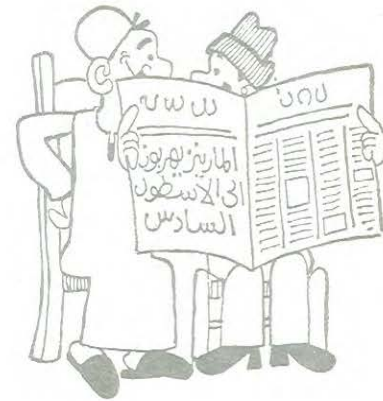 المارينز يهربون
الى الاسطول
السادس